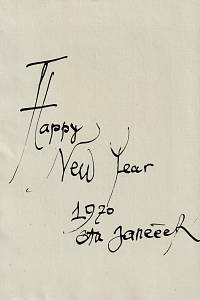 Happy
New Year
1970
Ota Janeček